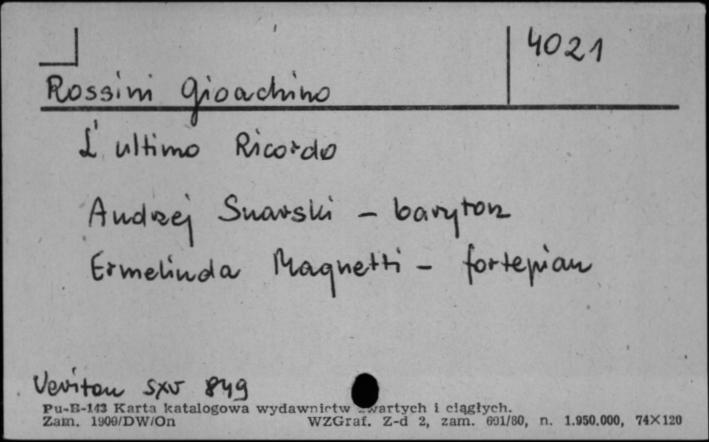 4021
Rossini Gioachino
L'ultimo Ricordo
Andrzej Snarski - baryton
Ermelinda Magnetti - fortepian
Veriton SXV 849
Pu-B-143 Karta katalogowa wydawnictw zwartych i ciągłych.
Zam. 1900/DW/On WZGraf. Z-d 2, zam. 691/80, n. 1.950.000, 74×120